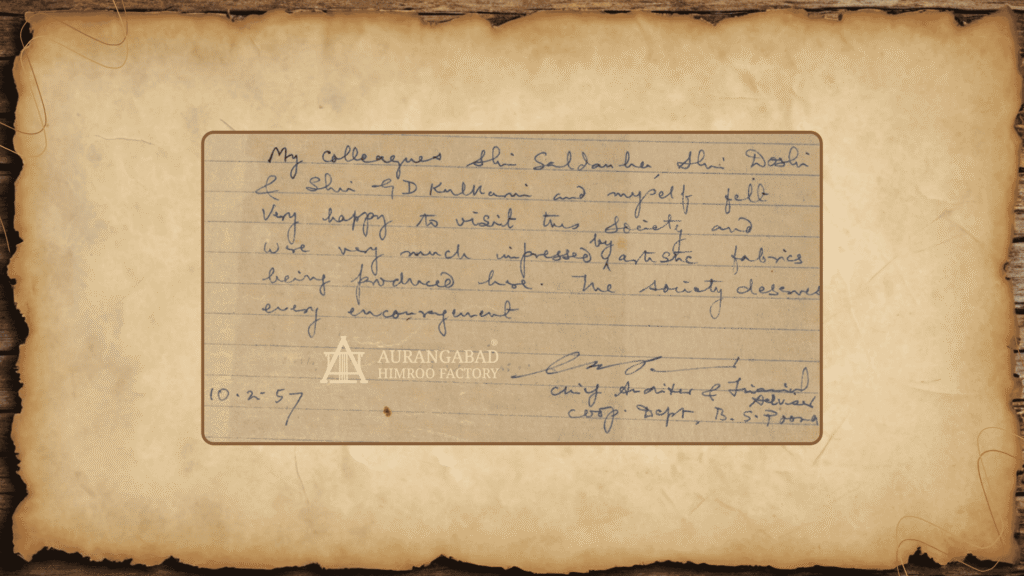 My colleagues Shri Saldanha, Shri Doshi
& Shri G D Kulkarni and myself felt
very happy to visit this Society and
were very much impressed by artistic fabrics
being produced here. The society deserves
every encouragement
AURANGABAD
HIMROO FACTORY
®
Chief Auditor & Financial
Adviser
10.2.57
Coop. Dept, B. S. Poona